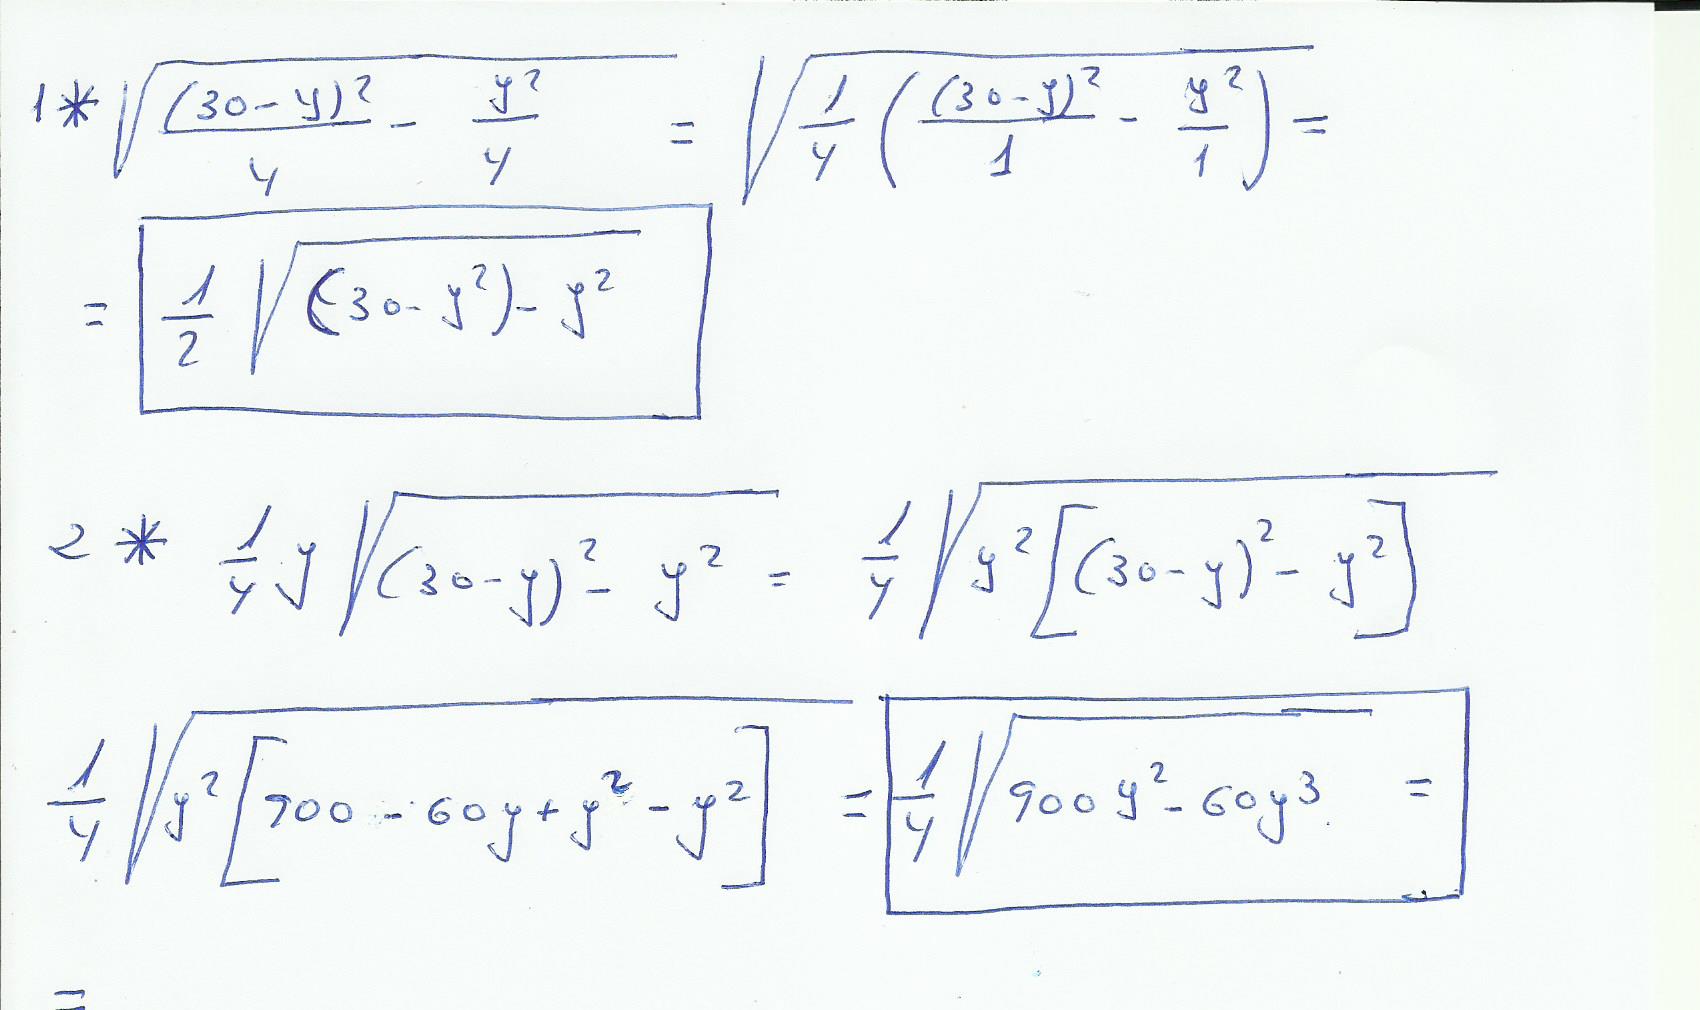 1* √((30-y)²/4 - y²/4) = √(1/4 ((30-y)²/1 - y²/1)) =
= 1/2 √((30-y²)-y²
2 * 1/4 y √((30-y)² - y²) = 1/4 √(y² [(30-y)² - y²])
1/4 √(y² [900 - 60y + y² - y²]) = 1/4 √(900y² - 60y³) =
=